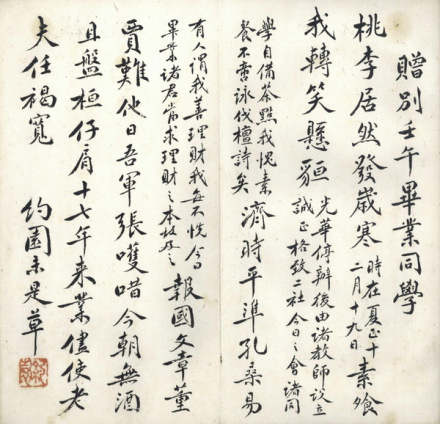 贈別壬午畢業同學
桃李居然發歲寒時在夏正十二月十九日素飧
我轉笑懸貆光華停辦後由諸教師設立誠正格致二社今日之會諸同
學自備茶點我愧素餐不啻詠伐檀詩矣濟時平準孔桑易
有人謂我善理財我每不悅今日畢業諸君當求理財之本故及之報國文章董
賈難他日吾軍張嚄唶今朝無酒
且盤桓仔肩十七年來業儘使老
夫任褐寬 約園未是草